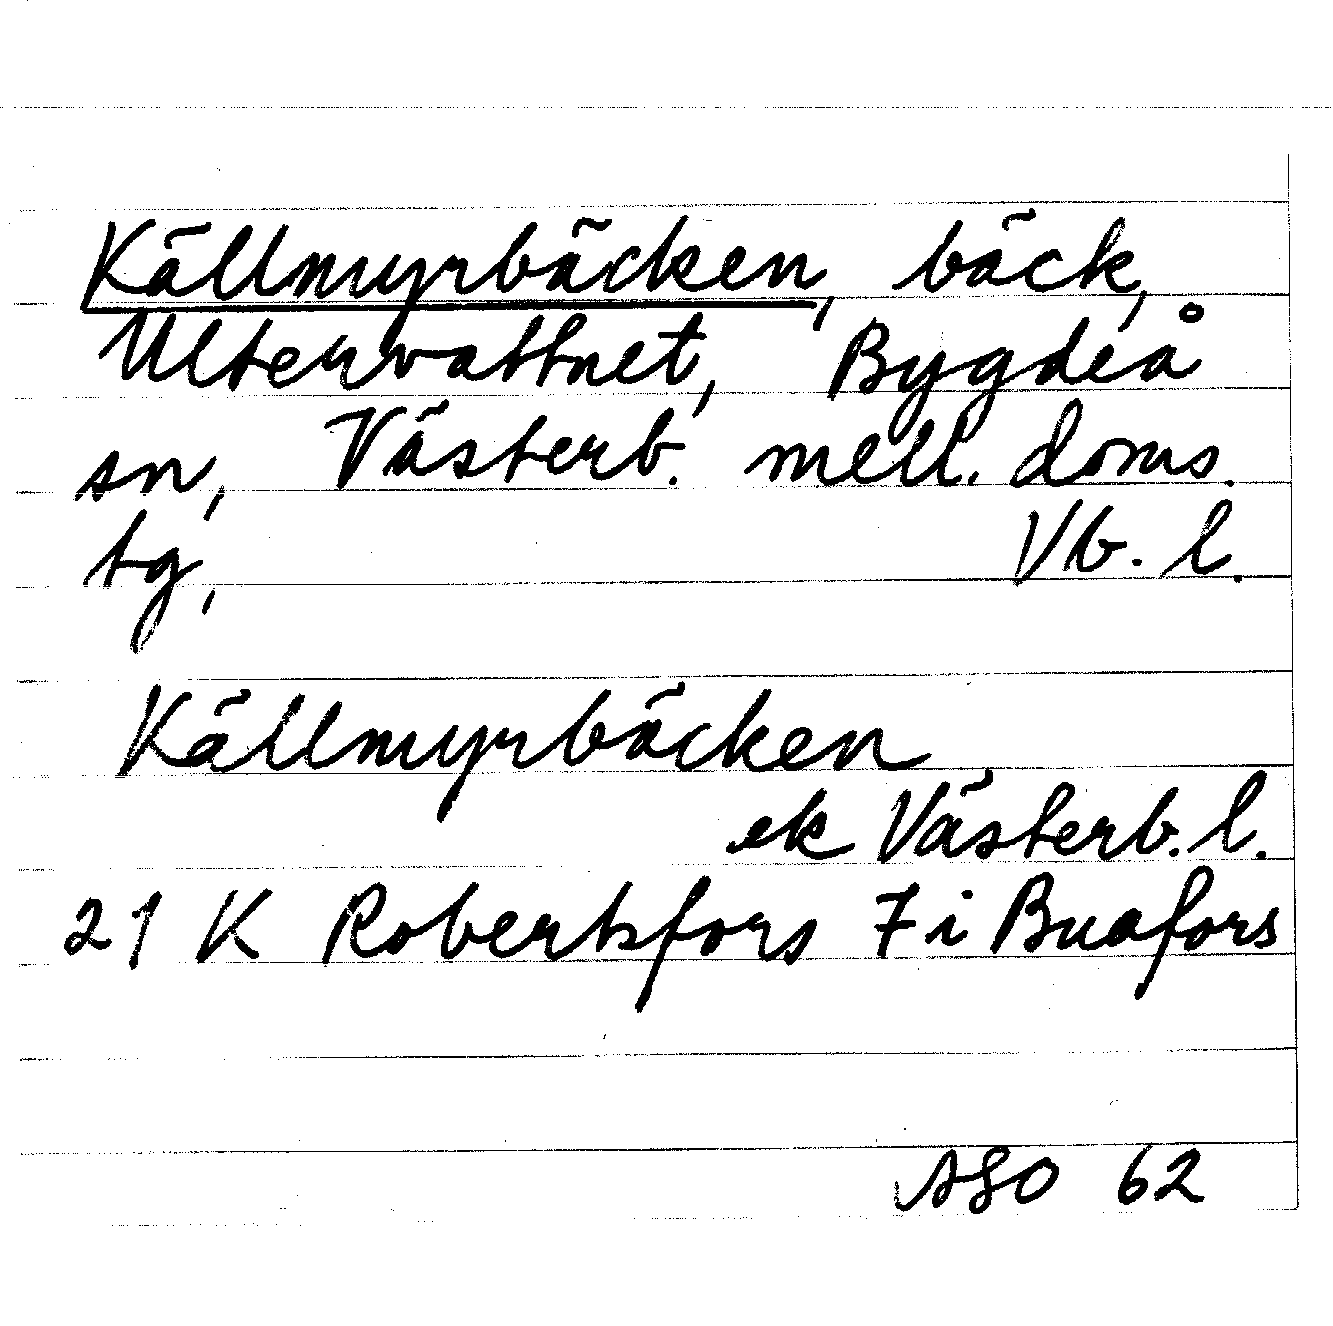 Källmyrbäcken, bäck,
Ultervattnet, Bygdeå
sn, Västerb. mell. doms.
tg, Vb. l.
Källmyrbäcken
ek Västerb. l.
21 K Robertsfors 7 i Buafors
ASO 62